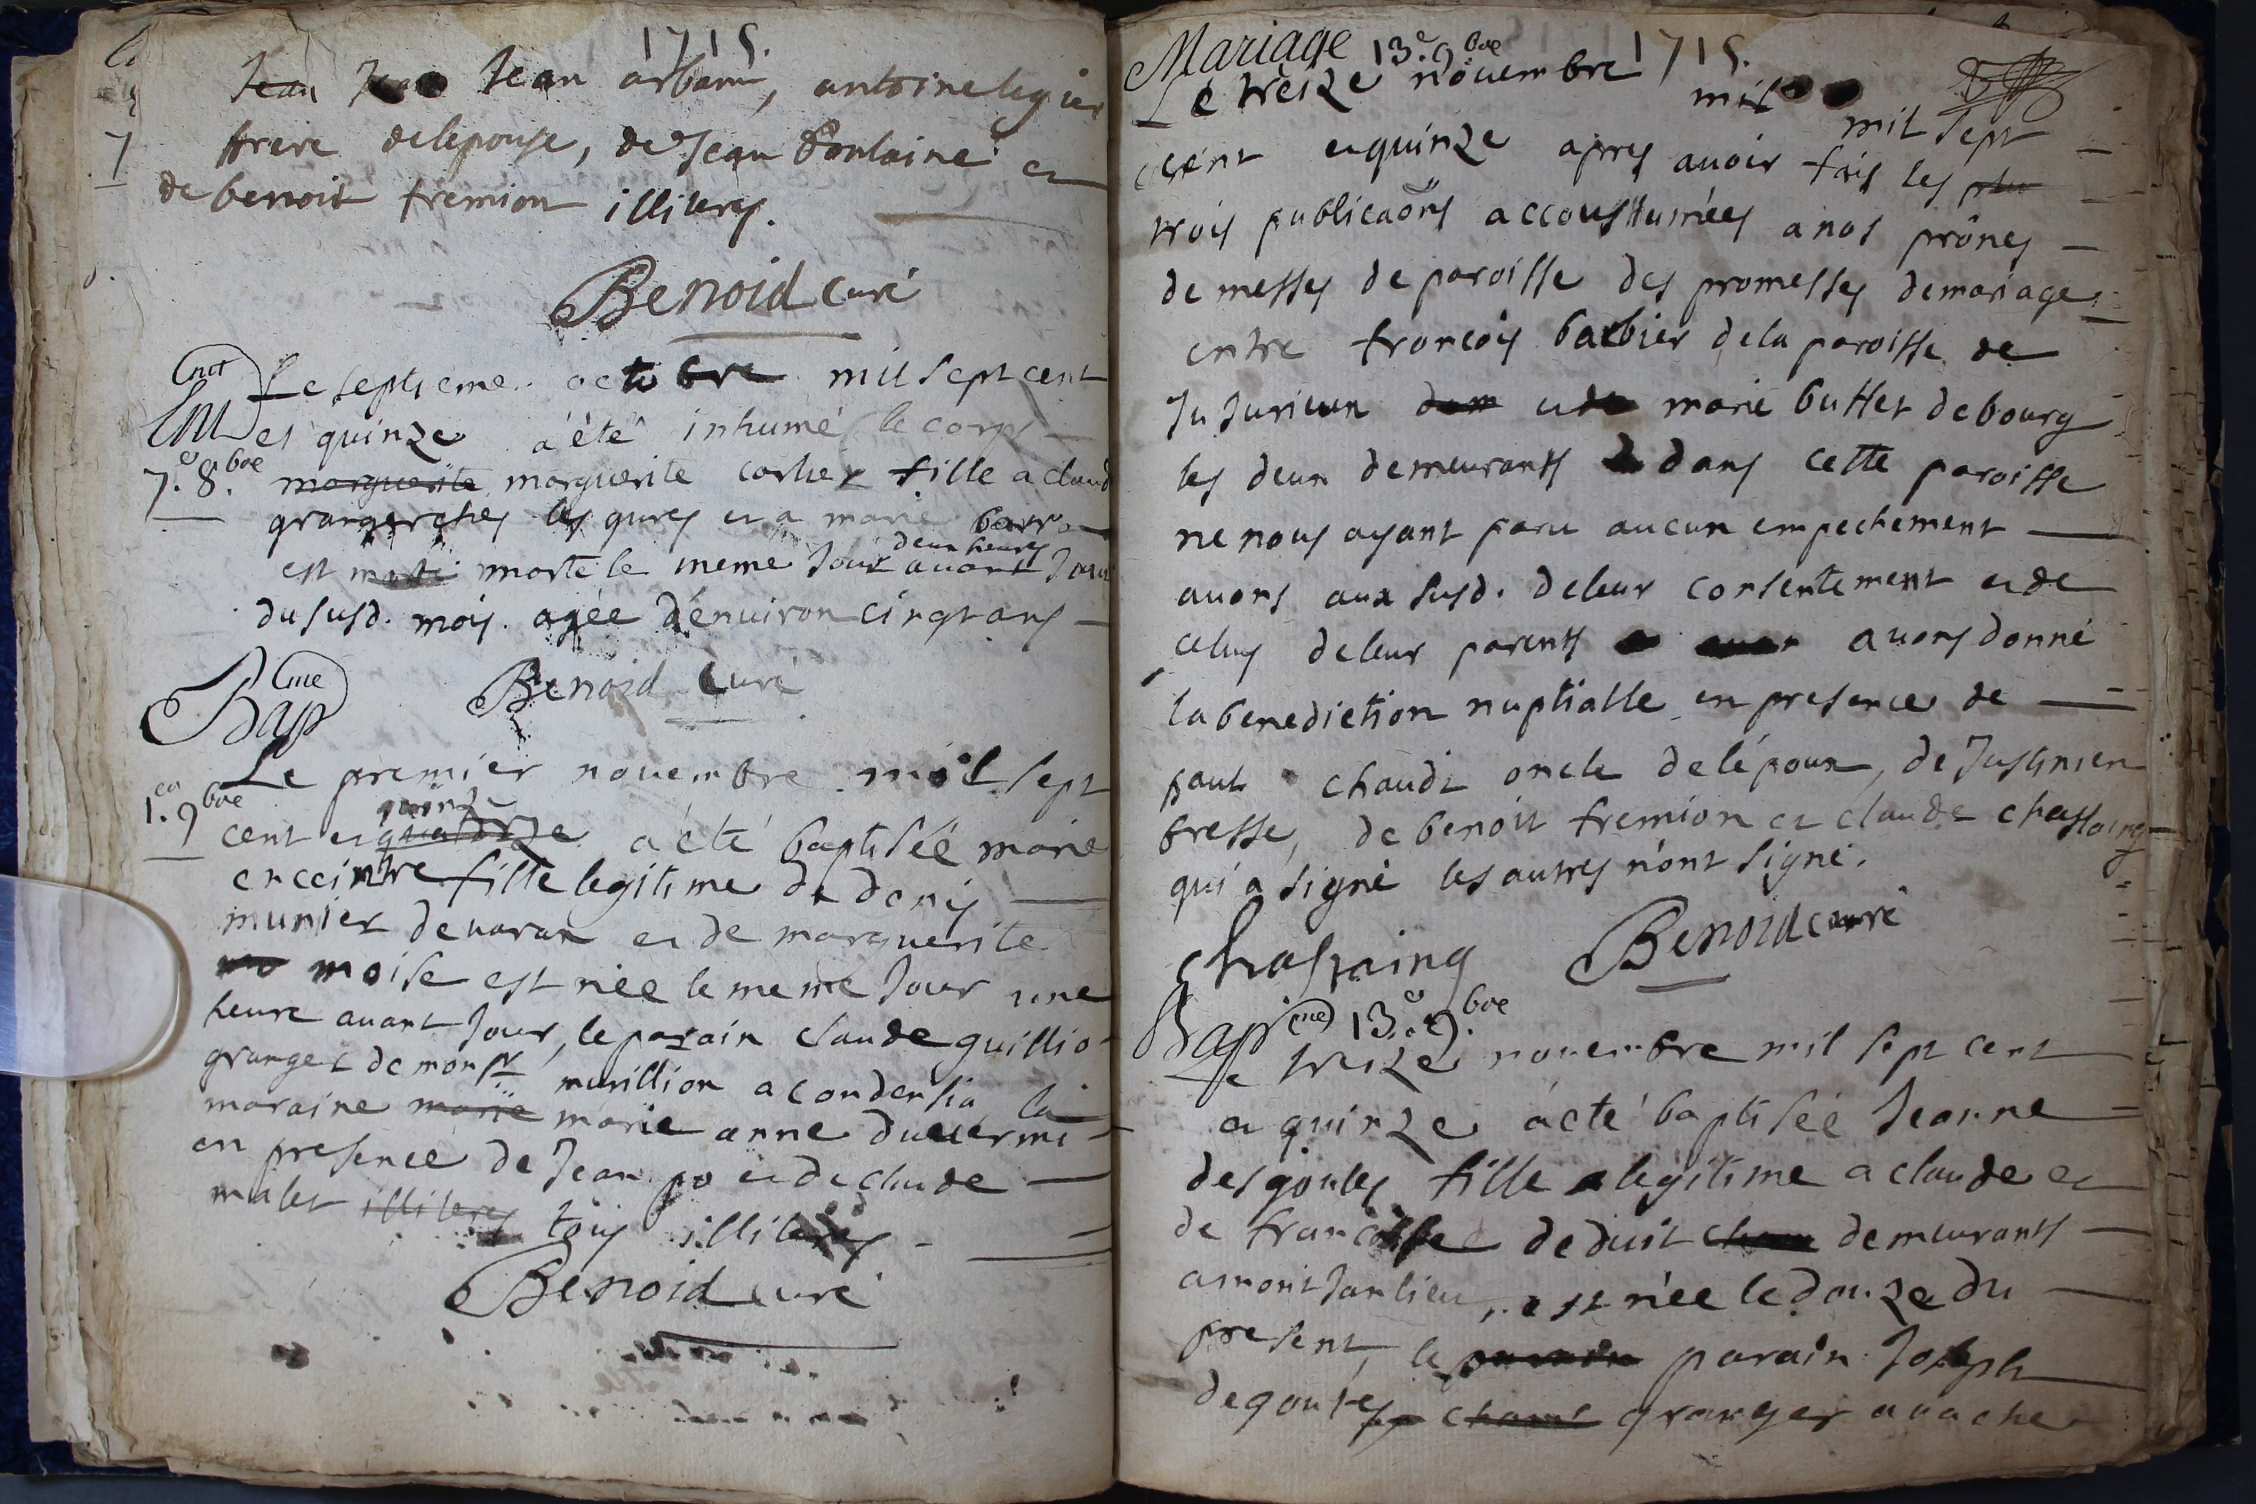 1715.
Jean Jean arbant, antoine legier
frere delepouse, de Jean fontaine et
de benoit fremion illiteres.
Benoid curé
Le septieme octobre mil sept cent
et quinze a été inhumé le corps
7.e 8.bre marguerite marguerite corlier fille a claud
granger ches les gures et a marie barr
deux heures
est morte morte le meme Jour avant Jour
du susd. mois. agée d'environ cinqt ans
Benoid curé
Bapme
Le premier novembre mil sept
1.er 9.bre
quinze
cent et quatorze a été baptisée marie
enceintre fille legitime de denis
munier de varax et de marguerite
mo moise est née le meme Jour une
heure avant Jour, le parain claude guillio
granger de monsr murillion a condensia, la
maraine marie marie anne duvermi
en presence de Jean po et de claude
malet illiteres tous illiteres
Benoid curé
Mariage 13.e 9.bre 1715.
Le treize novembre mil mil sept
cent et quinze apres avoir fais les plu
trois publicaons accoustumées a nos prônes
de messes de paroisse des promesses de mariage
entre francois barbier de la paroisse de
JuJurieux et de marie buttet de bourg
les deux demeurants dans cette paroisse
ne nous ayant paru aucun empechement
avons aux susd. de leur consentement et de
celuy de leur parents avons donné
la benediction nuptialle en presence de
paul chaudt oncle de lépoux, de Justinien
bresse, de benoit fremion et claude chastaing
qui a signé les autres n'ont signé.
chastaing Benoid curé
Bapme 13.e 9.bre
Le treize novembre mil sept cent
et quinze a été baptisée Jeanne
desgoutes fille legitime a claude et
de francoise deduit demeurants
a mont Janlieu, est née le douze du
present, le parain parain Joseph
degoutes granger a vache